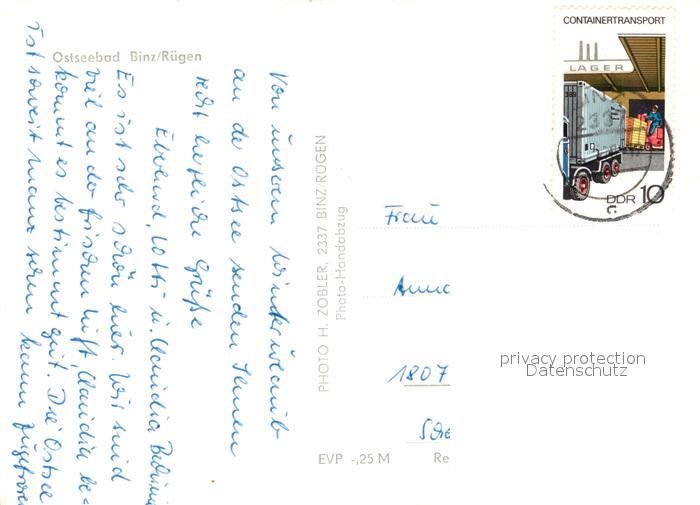 Ostseebad Binz/Rügen
Von unserem Winterurlaub
an der Ostsee senden Ihnen
recht herzliche Grüße
Eberhard, Lotti u. Claudia
Es ist sehr schön hier. Wir sind
viel an der frischen Luft, Claudia be=
kommt es bestimmt gut. Die Ostsee
ist soweit man sehen kann zugefroren
PHOTO H. ZOBLER, 2337 BINZ RÜGEN
Photo-Handabzug
CONTAINERTRANSPORT
LAGER
DDR 10
Frau
Anna
1807
EVP -,25 M
Re
privacy protection
Datenschutz